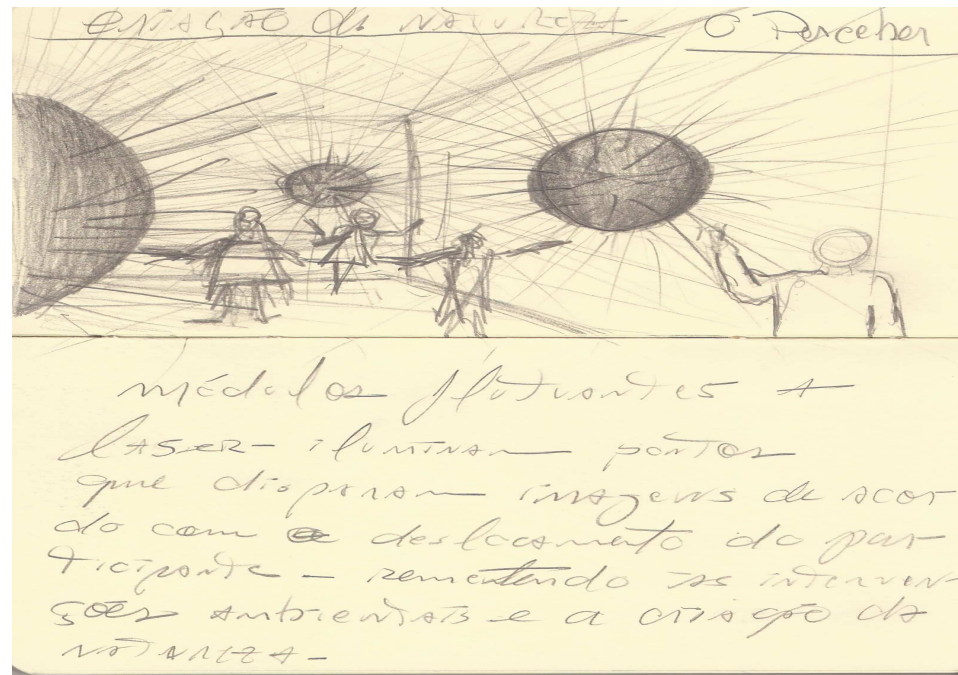 CRIAÇÃO da NATUREZA
O Perceber
módulos flutuantes A
LASER - iluminam pontos
que disparam imagens de acor
do com o deslocamento do par
ticipante - remetendo as interven
ções AMBIENTAIS e a criação da
NATUREZA -